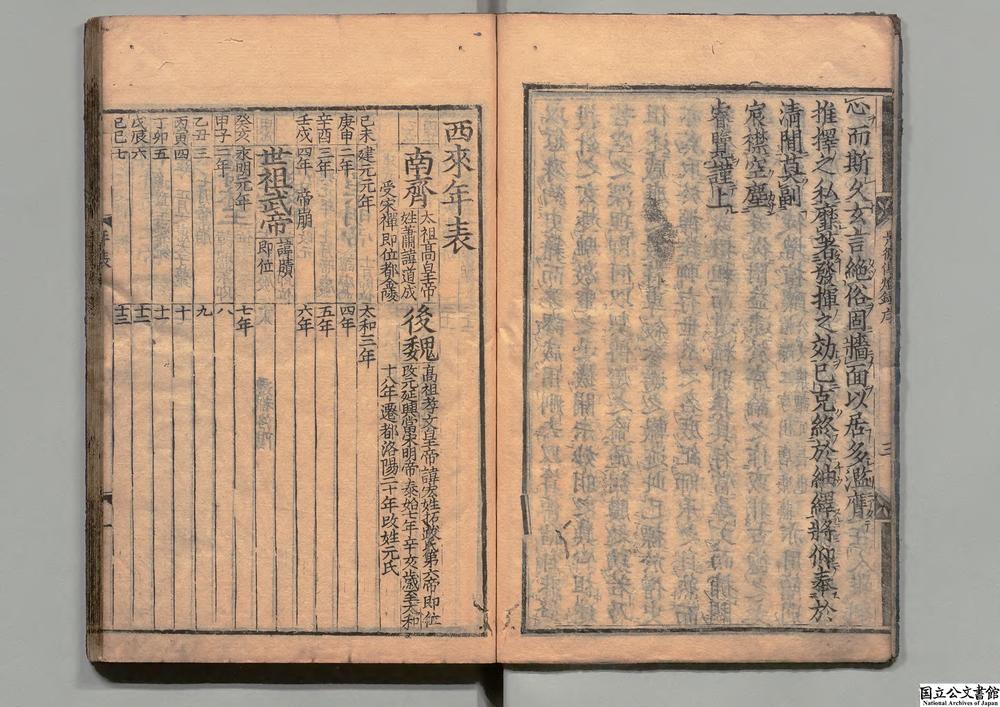 心而斯久玄言絶俗固牆面以居多濫膺
推擇之私靡著發揮之効已克終於紬繹將仰奉於
清閒莫副
宸襟空塵
睿覽謹上
三
西來年表
南齊
太祖高皇帝
姓蕭諱道成
受宋禪即位都金陵
後魏
高祖孝文皇帝諱宏姓拓跋氏第六帝即位
改元延興當宋明帝泰始七年辛亥歳至太和
十八年遷都洛陽二十年改姓元氏
己未 建元元年 太和三年
庚申 二年 四年
辛酉 三年 五年
壬戌 四年 帝崩 六年
世祖武帝
諱賾
即位
癸亥 永明元年 七年
甲子 二年 八
乙丑 三 九
丙寅 四 十
丁卯 五 十一
戊辰 六 十二
己巳 七 十三
年表
一
国立公文書館
National Archives of Japan